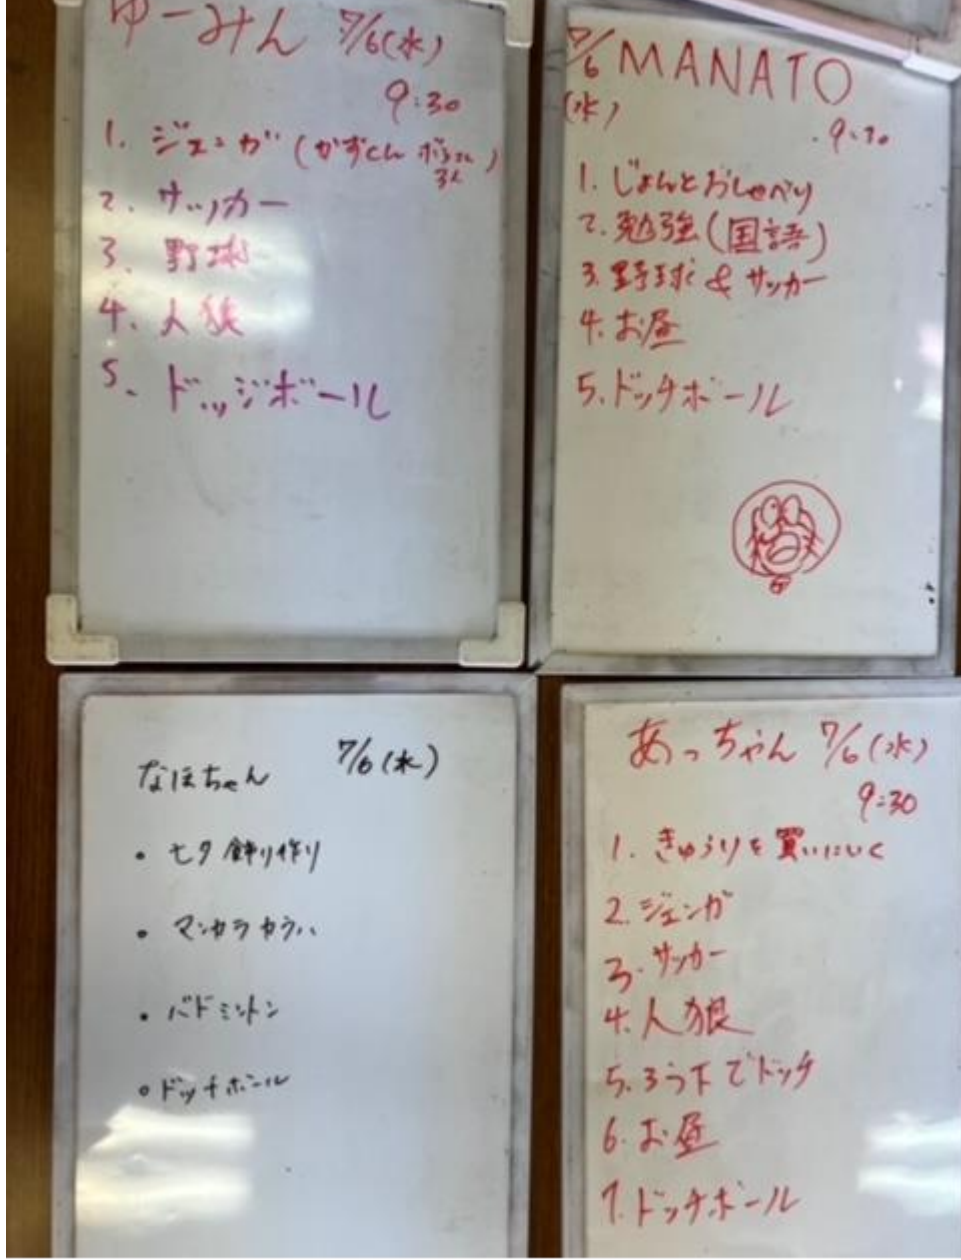 ゆーみん 7/6(水)
9:30
1. ジェンガ(かずくん
2. サッカー
3. 野球
4. 人狼
5. ドッジボール
7/6 MANATO
(水)
9:30
1. じょんとおしゃべり
2. 勉強(国語)
3. 野球&サッカー
4. お昼
5. ドッチボール
なほちゃん 7/6(水)
・七夕飾り作り
・マンカラカラハ
・バドミントン
・ドッチボール
あっちゃん 7/6(水)
9:30
1. きゅうりを買いにいく
2. ジェンガ
3. サッカー
4. 人狼
5. ろう下でドッチ
6. お昼
7. ドッチボール